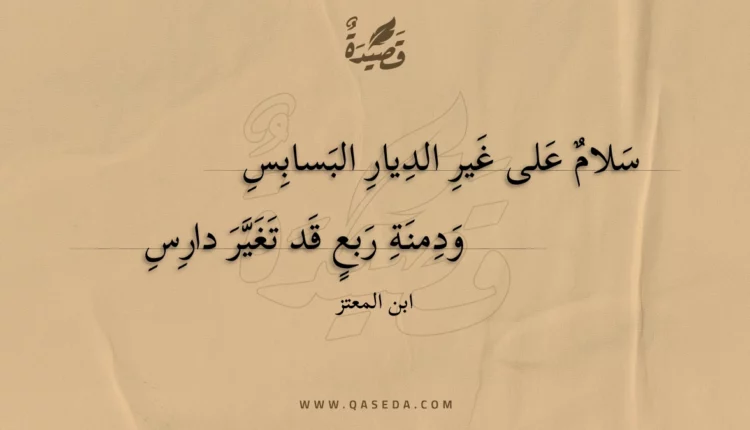 قَصِيدَةٌ
سَلامٌ عَلى غَيرِ الدِيارِ البَسابِسِ
وَدِمنَةِ رَبعٍ قَد تَغَيَّرَ دارِسِ
ابن المعتز
WWW.QASEDA.COM